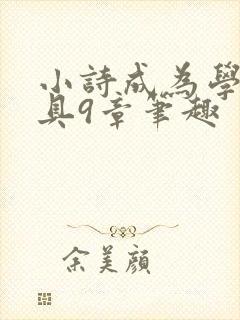 小詩成為學
具9章筆趣
余美顏